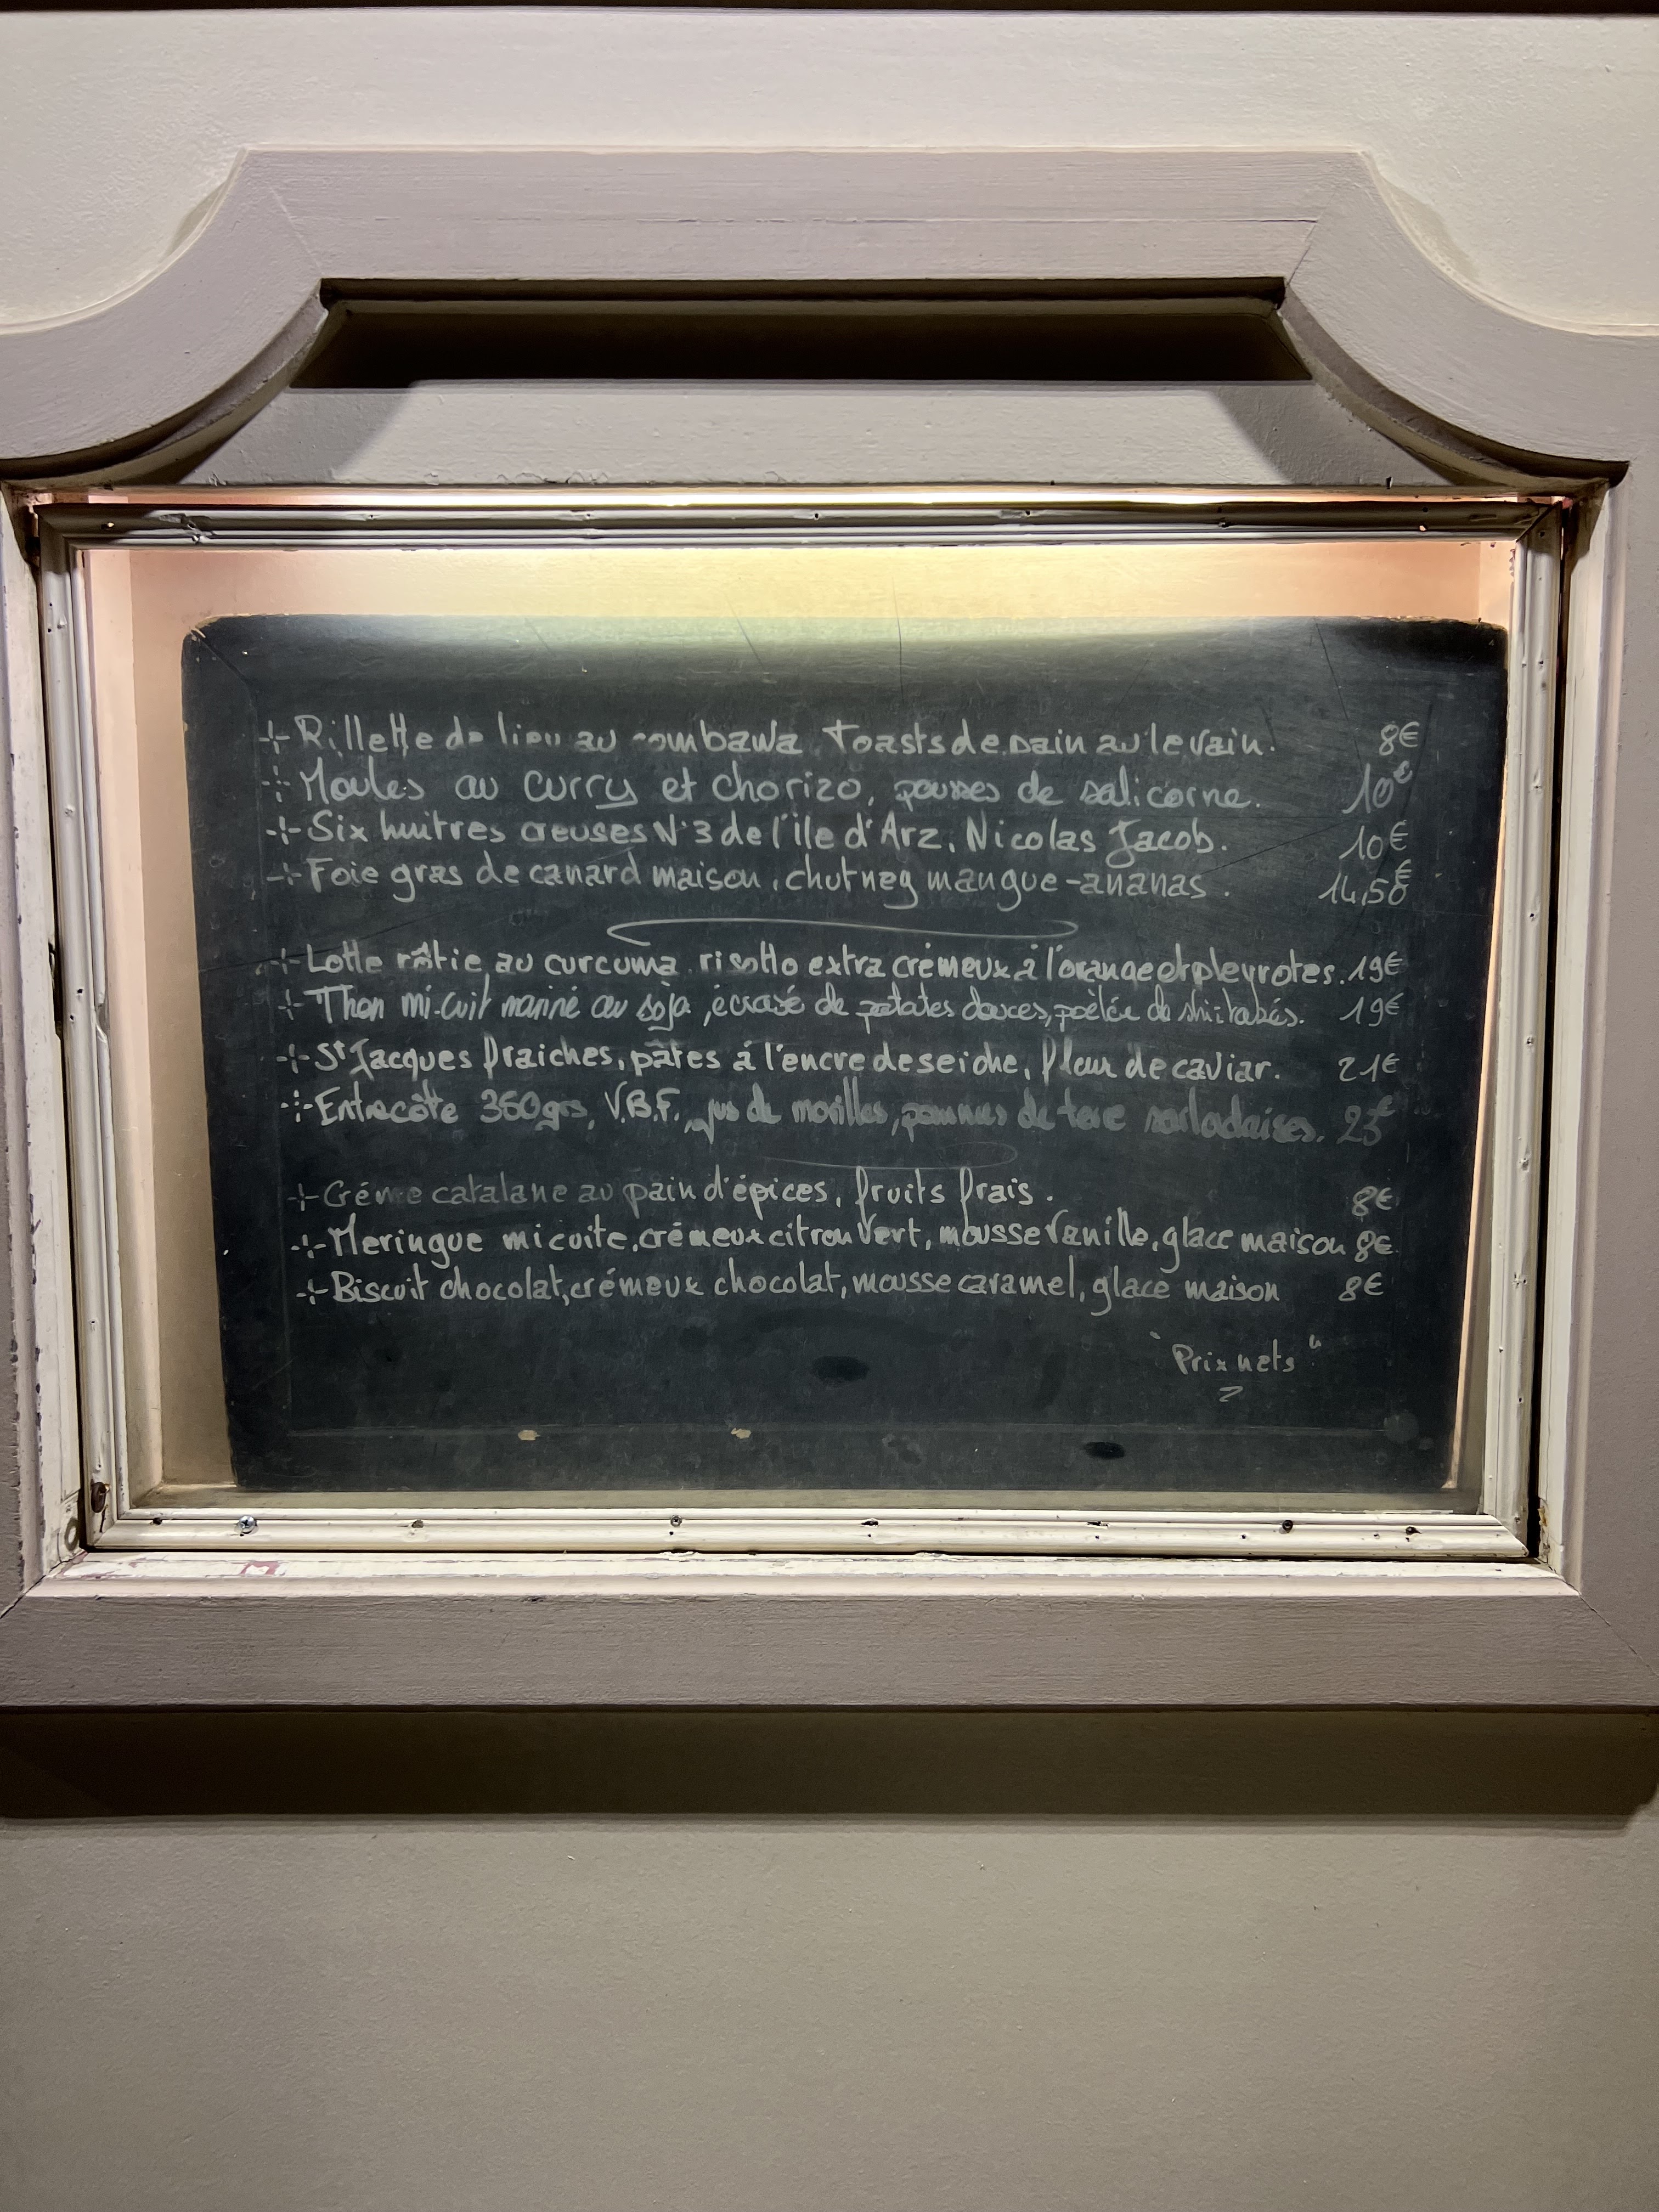 Rillette de lieu au combawa, Toasts de pain au levain. 8€
Moules au curry et chorizo, pousses de salicorne. 10€
Six huîtres creuses N°3 de l'île d'Arz, Nicolas Jacob. 10€
Foie gras de canard maison, chutney mangue-ananas. 14,50€
Lotte rôtie au curcuma, risotto extra crémeux à l'orange et pleyrotes. 19€
Thon mi-cuit mariné au soja, écrasé de patates douces, poêlée de shiitakés. 19€
St Jacques fraiches, pâtes à l'encre de seiche, fleur de caviar. 21€
Entrecôte 360grs, V.B.F. jus de morilles, pommes de terre sarladaises. 23€
Créme catalane au pain d'épices, fruits frais. 8€
Meringue micuite, crémeux citron vert, mousse vanille, glace maison 8€
Biscuit chocolat, crémeux chocolat, mousse caramel, glace maison 8€
"Prix nets"